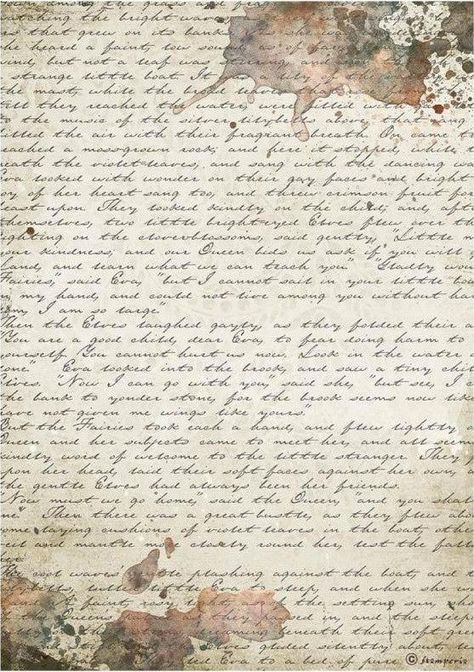 watching the bright waves
s that grew on its bank
she heard a faint, low sou
und, but not a leaf was
strange little boat. It
mast, while the broke
ill they reached the water, were
to the music of the silver lilybells above, that
illed the air with their fragrant breath. On came
eached a moss-grown rock, and here it stopped, while
eath the violet-leaves, and sang with the dancing wa
va looked with wonder on their gay faces and bright
oy of her heart sang too, and threw crimson fruit for
east upon. They looked kindly on the child, and, aft
hemselves, two little bright-eyed Elves flew over
ighting on the clover-blossoms, said gently, "Little
our kindness, and our Queen bids us ask if you will
Land, and learn what we can teach you." "Gladly wou
Fairies," said Eva, "but I cannot sail in your little bo
n my hand, and could not live among you without ha
m, I am so large."
Then the Elves laughed gayly, as they folded their
You are a good child, dear Eva, to fear doing harm to
yourself. You cannot hurt us now. Look in the water
one." Eva looked into the brook, and saw a tiny chil
Elves. "Now I can go with you," said she, "but see, I
the bank to yonder stone, for the brook seems now like
have not given me wings like yours."
But the Fairies took each a hand, and flew lightly
Queen and her subjects came to meet her, and all seem
kindly word of welcome to the little stranger. They
pon her head, laid their soft faces against her own,
the gentle Elves had always been her friends.
"Now must we go home," said the Queen, "and you sha
me." Then there was a great bustle, as they flew abo
ome laying cushions of violet leaves in the boat, othe
eil and mantle more closely round her, lest the fall
her.
The cool waves' plashing against the boat, and
lybells, Eva to sleep, and when she
a faint, rosy light, as the setting sun,
the Queen's
streaming beneath their soft
flowers glided silently about,
led Eva to a bed of pure
© stamperia